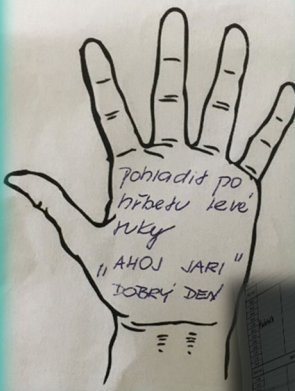 pohladit po
hřbetu levé
ruky
„AHOJ JARI"
DOBRÝ DEN